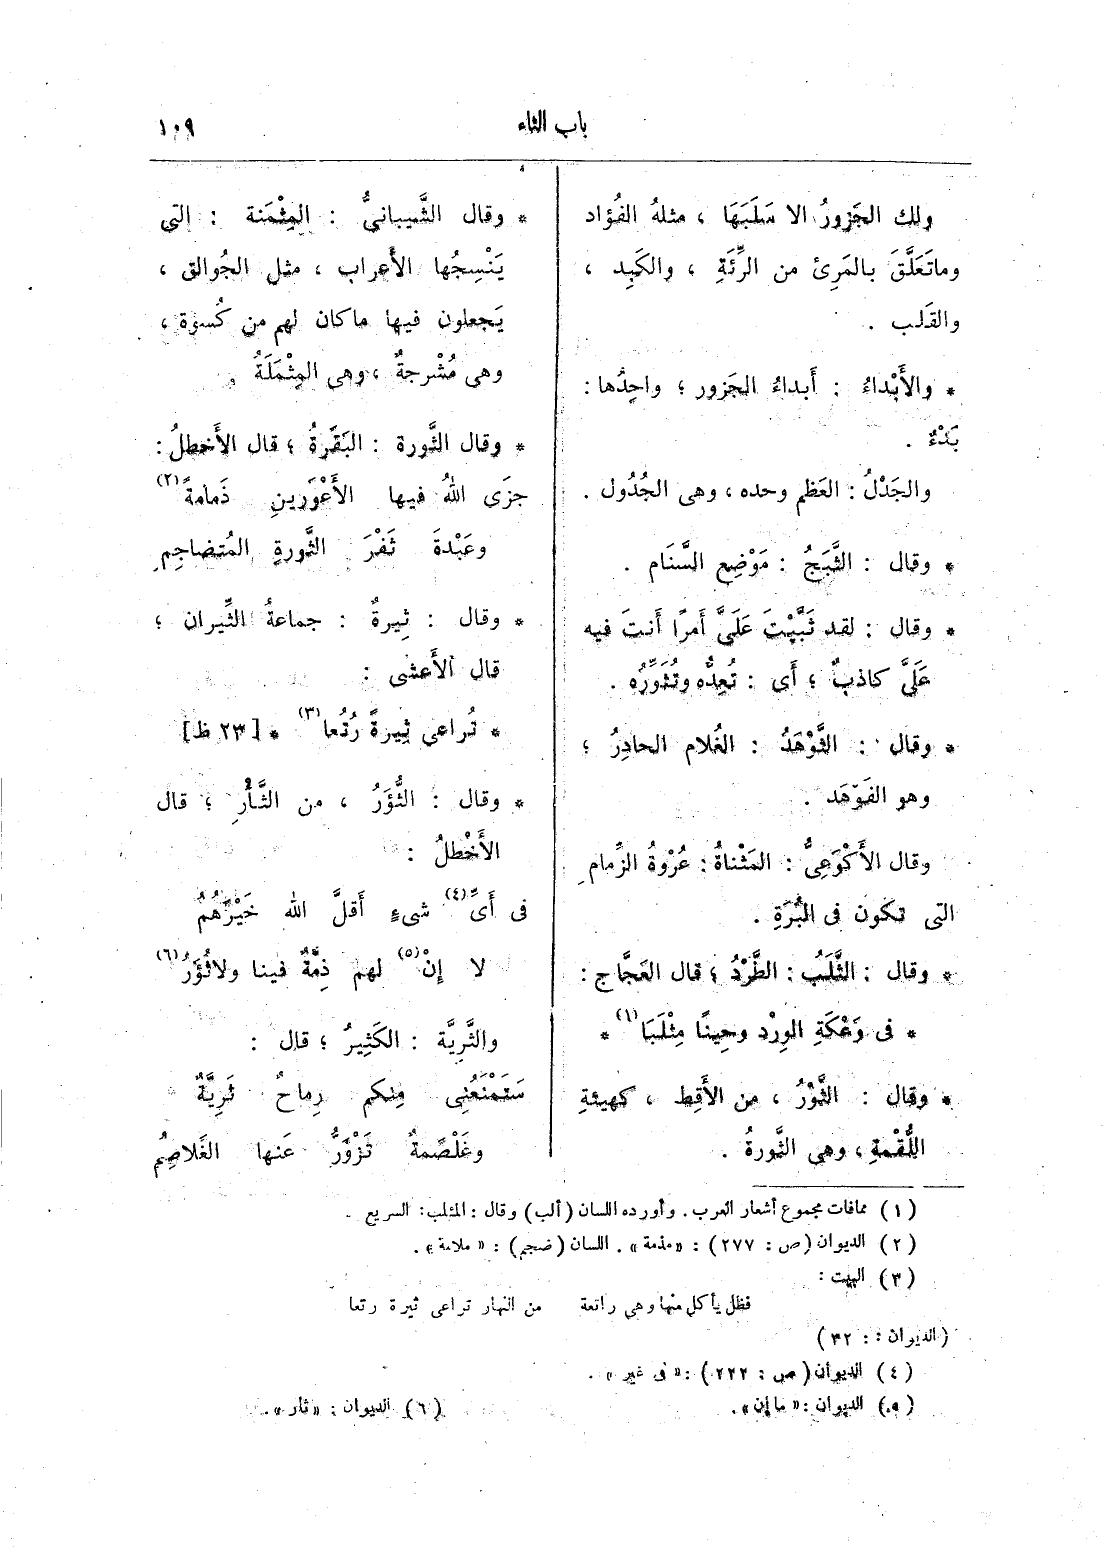 باب الثاء
١٠٩
ولك الجَزورُ الا سَلَبَهَا ، مثلهُ الفُؤاد
وماتَعَلَّقَ بالمَرِئ من الرِّئَةِ ، والكَبِد ،
والقَلب .
* والأَبْداءُ : أَبداءُ الجَزور ؛ واحِدُها :
بَدْءٌ .
والجَدْلُ : العَظم وحده ، وهى الجُدُول .
* وقال : الثَّبَجُ : مَوْضِع السَّنَام .
* وقال : لقد ثَبَّيْتَ عَلَىَّ أَمرًا أَنتَ فيه
عَلَىَّ كاذبٌ ؛ أَى : تُعِدُّه وتُثَوِّرُه .
* وقال : الثَّوْهَدُ : الغُلام الحادِرُ ؛
وهو الفَوْهَد .
وقال الأَكْوَعِىُّ : المَثْناةُ : عُرْوةُ الزِّمام
التى تكون فى البُرَةِ .
* وقال : الثَّلَبُ : الطَّرْدُ ؛ قال العَجَّاج :
* فى وَعْكَةِ الوِرْد وحِينًا مِثْلَبَا (١) *
* وقال : الثَّوْرُ ، من الأَقِط ، كهيئةِ
اللُّقْمةِ ، وهى الثَّورةُ .
* وقال الشَّيبانىُّ : المِثْمَنة : التى
يَنْسِجُها الأَعراب ، مثل الجُوالق ،
يَجعلون فيها ماكان لهم من كُسوَة ،
وهى مُشْرجةٌ ، وهى المِثْمَلَةُ .
* وقال الثَّورة : البَقَرةُ ؛ قال الأَخطلُ :
جزَى اللهُ فيها الأَعْوَرينِ ذَمامةً (٢)
وعَبْدةَ ثَفْرَ الثَّورةِ المُتضاجِم
* وقال : ثِيرةٌ : جماعةُ الثِّيران ؛
قال الأَعشى :
* تُراعى ثِيرةً رُتُعا (٣) * [ ٢٣ ظ ]
* وقال : الثُّؤَرُ ، من الثَّأْرِ ؛ قال
الأَخْطلُ :
فى أَىِّ (٤) شىءٍ أَقلَّ الله خَيْرَهُمُ
لا إِنْ (٥) لهم ذِمَّةٌ فينا ولاثُؤَرُ (٦)
والثَّرِيَّة : الكَثِيرُ ؛ قال :
سَتَمْنَعُنِى مِنكم رِماحٌ ثَرِيَّةٌ
وغَلْصَمةٌ تَزْوَرُّ عَنها الغَلاصِمُ
(١) ممافات مجموع أشعار العرب . وأورده اللسان (ألب) وقال : المئلب: السريع .
(٢) الديوان (ص : ٢٧٧) : «مذمة» . اللسان (ضجم) : « ملامة » .
(٣) البيت :
فظل يأكل منها وهى راتعة من النهار تراعى ثيرة رتعا
(الديوان : : ٣٢)
(٤) الديوان (ص : ٢٢٢) : « فى غير » .
(٥) الديوان : « ما إن» .
(٦) الديوان : «ثار» .